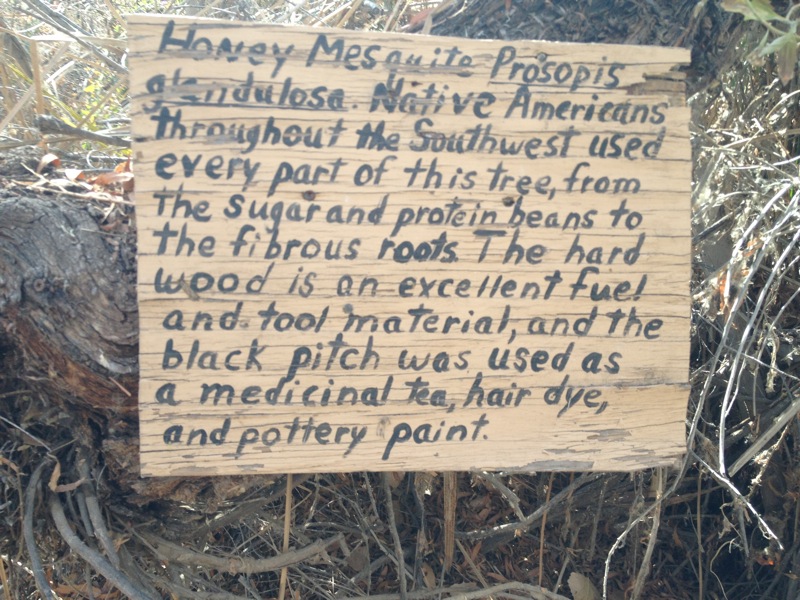 Honey Mesquite Prosopis
glandulosa. Native Americans
throughout the Southwest used
every part of this tree, from
the sugar and protein beans to
the fibrous roots. The hard
wood is an excellent fuel
and tool material, and the
black pitch was used as
a medicinal tea, hair dye,
and pottery paint.